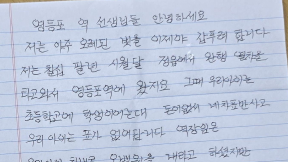 영등포 역 선생님들 안녕하세요
저는 아주 오래된 빚을 이제야 갚푸려 합니다
저는 칠십 팔련 시월달 정읍에서 완행 열차을
타고와서 영등포역에 왔지요 그때 우리아이는
초등학교에 학생이어는대 돈이없어 내차표만 사고
우리 아이는 표가 없어답니다 역장님은